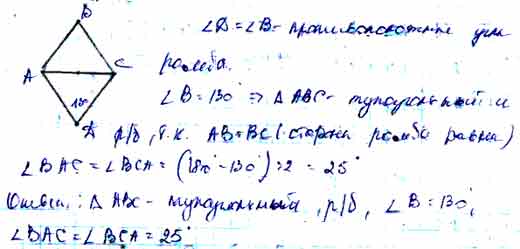 B
∠D = ∠B - противоположные углы
A C ромба.
130°
∠B = 130° ⇒ △ABC - тупоугольный и
D р/б, т.к. AB = BC (стороны ромба равны)
∠BAC = ∠BCA = (180° - 130°) : 2 = 25°
Ответ: △ABC - тупоугольный, р/б, ∠B = 130°,
∠BAC = ∠BCA = 25°